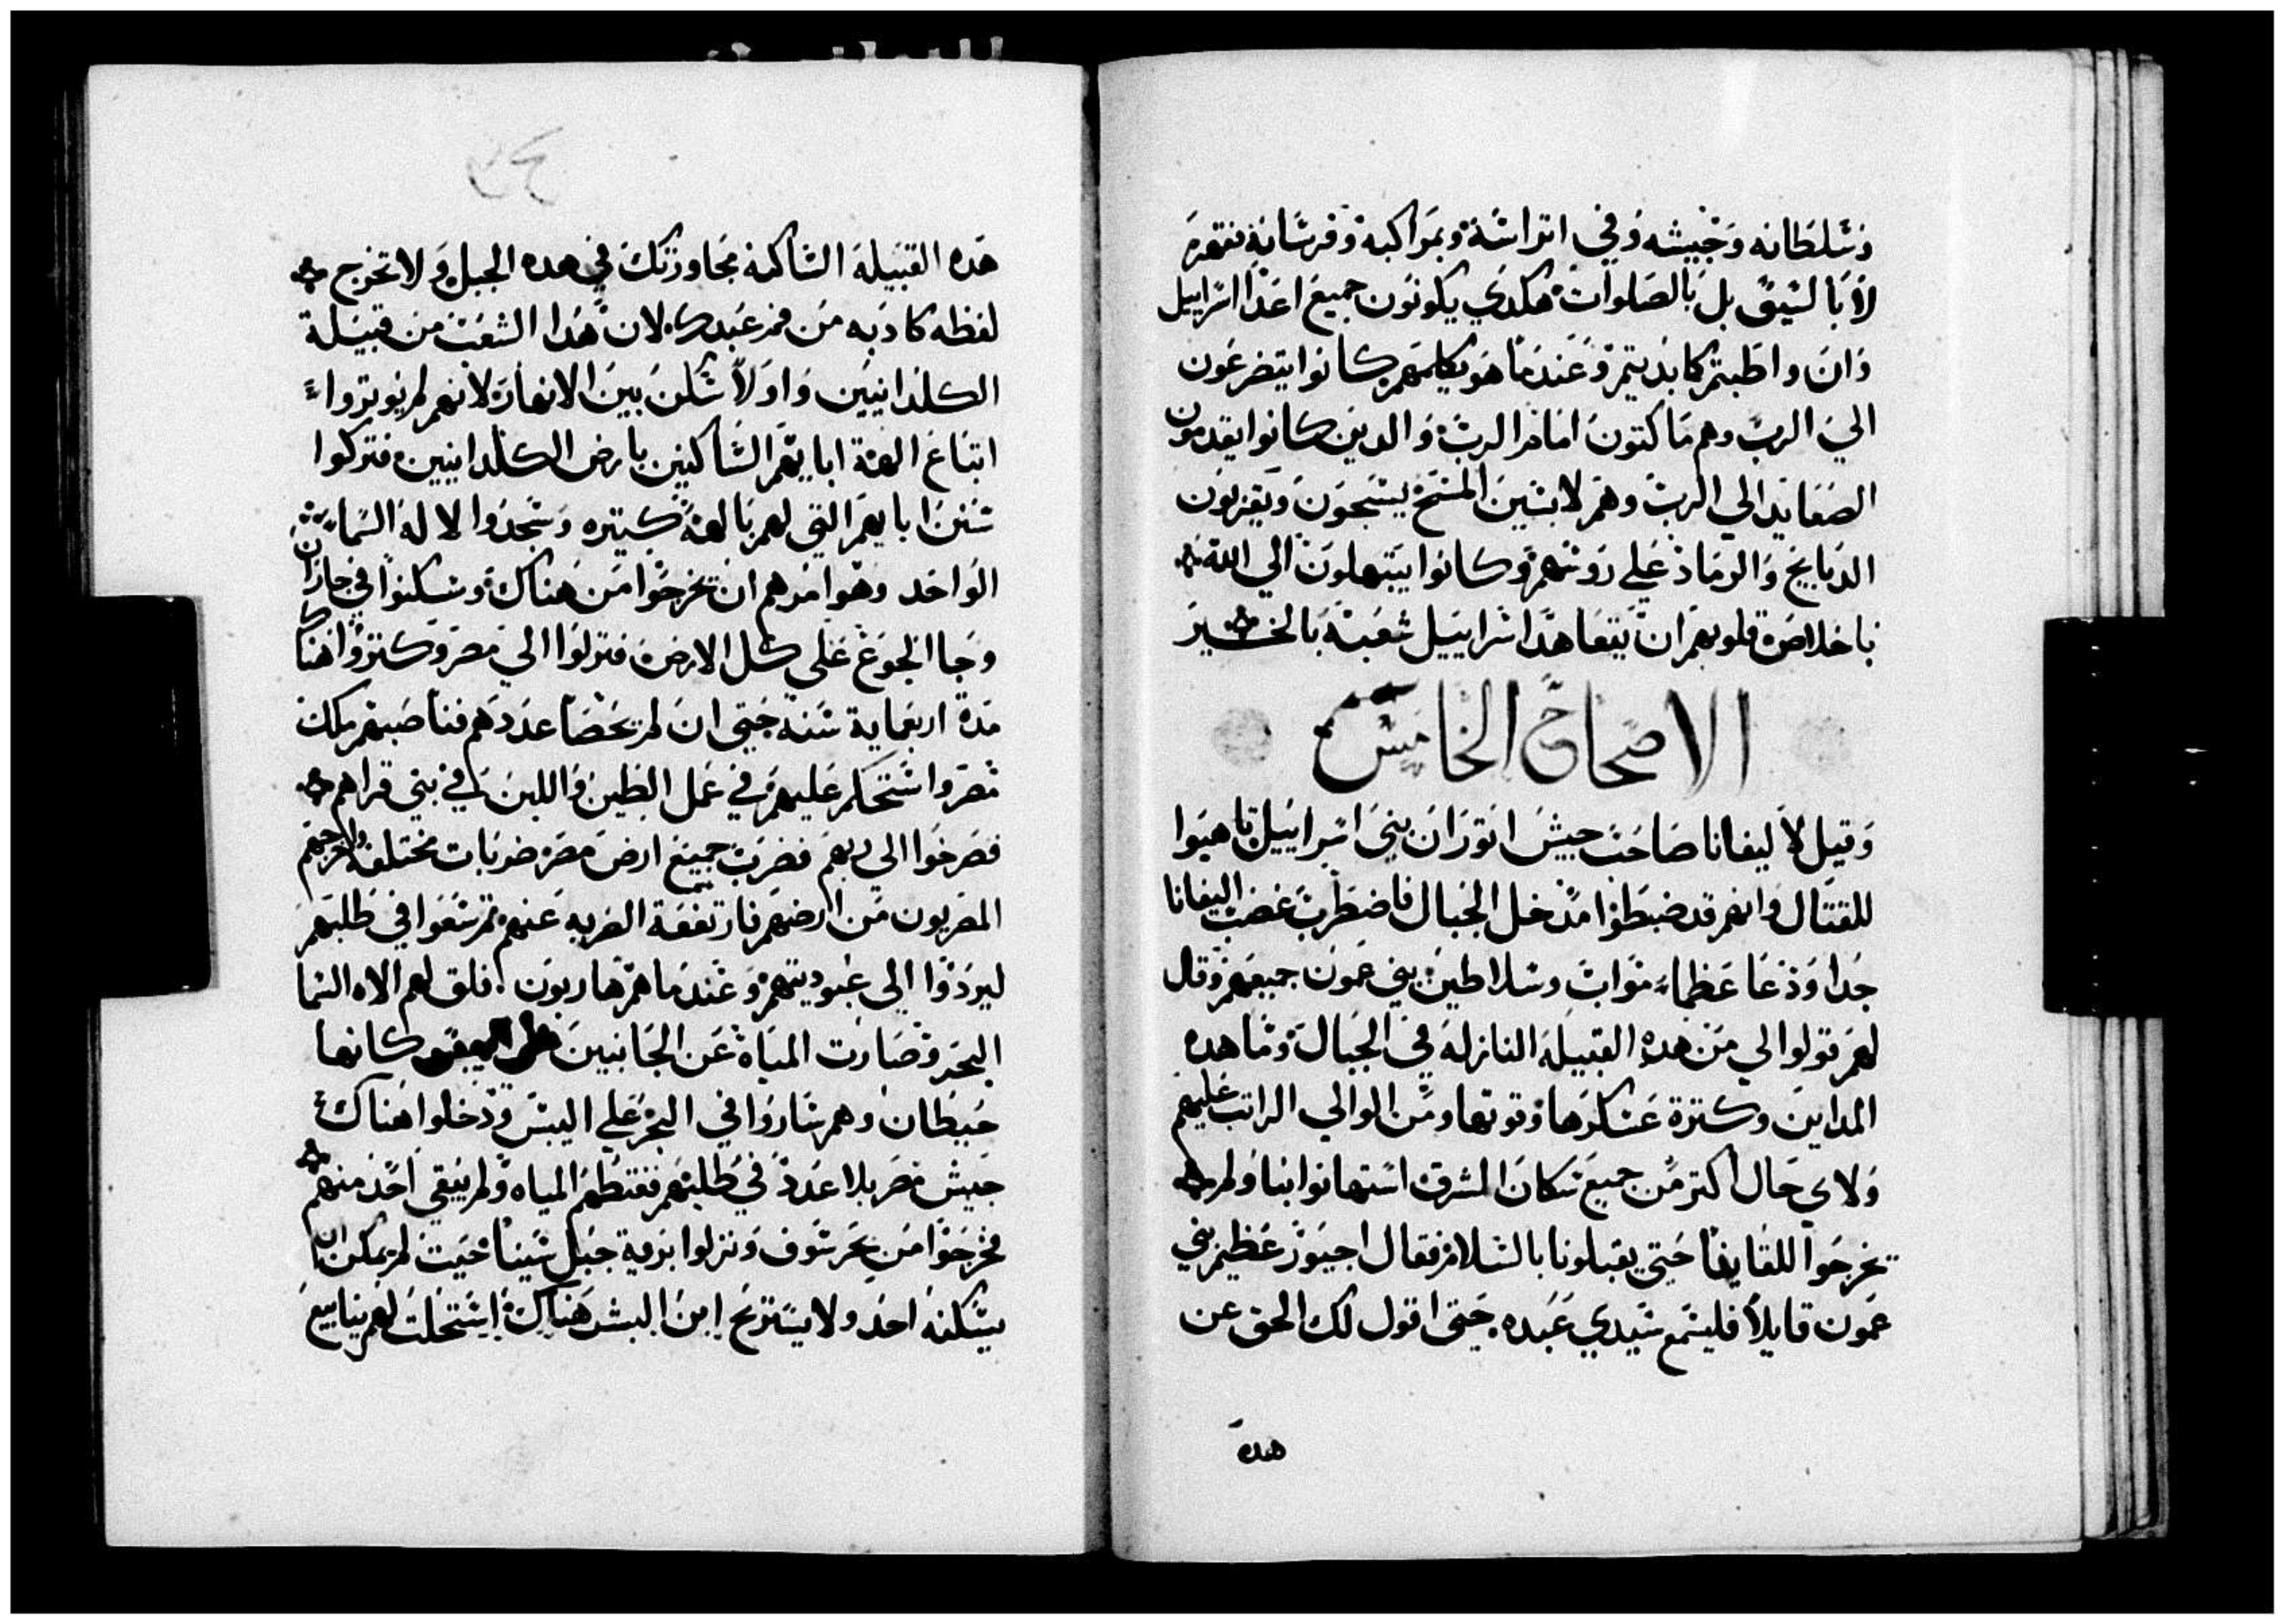 وسلطانه وجيشه وفي اتراسه وبمراكبه وفرسانه فقهره
لا بالسيف بل بالصلوات هكدي يكونون جميع اعدا اسراييل
وان واظبتم كما بديتم وعندما هو يكلمهم كانوا يتضرعون
الي الرب وهم ماكتون امام الرب والدين كانوا يقدمون
الصعايد الي الرب وهم لابسين المسح يسبحون ويقربون
الدبايح والرماد علي روسهم وكانوا يبتهلون الي الله
باخلاص قلوبهم ان يتعاهد اسراييل شعبه بالخير
الاصحاح الخامس
وقيل لاليفانا صاحب جيش اتوران بني اسراييل تاهبوا
للقتال وانهم قد ضبطوا مدخل الجبال فاضطرب غضب اليفانا
جدا ودعا عظماء مواب وسلاطين بني عمون جميعهم وقال
لهم قولوا لي من هده القبيلة النازله في الجبال وما هده
المداين وكترة عسكرها وقوتها ومن الوالي الراتب عليهم
ولاي حال اكتر من جميع سكان المشرق استهانوا بنا ولم
تخرجوا للقايفا حتي يقبلونا بالسلام فقال اجيور عظيم بني
عمون قايلا فليسمع سيدي عبده حتي اقول لك الحق عن
هده
هده القبيله الساكنه مجاورتك في هده الجبل ولا تخرج
لفظه كادبه من فم عبدك لان هدا الشعب من قبيلة
الكلدانيين واولا سكن بين الانهار لانهم لم يوتروا
اتباع الهة ابايهم الساكنين بارض الكلدانيين فتركوا
سنن ابايهم التي لهم بالهة كتيره وسجدوا لاله السماء
الواحد وهو امرهم ان تخرجوا من هناك وسكنوا في حاران
وجا الجوع علي كل الارض فنزلوا الي مصر وكتروا هناك
مدة اربعماية سنه حتي ان لم تحصا عددهم فناصبهم ملك
مصر واستحكم عليهم في عمل الطين واللبن في بني قراهم
فصرخوا الي ربهم فضرب جميع ارض مصر ضربات مختلفه واخرجهم
المصريون من ارضهم فارتفعة الضربه عنهم تم سعوا في طلبهم
ليردوا الي عبوديتهم وعندما هم هاربون فلق لهم الاه السما
البحر وصارت المياه عن الجانبين كانها
حيطان وهم ساروا في البحر علي اليبس ودخلوا هناك
جيش مصر بلا عدد في طلبهم فغتطهم المياه ولم يبقي احد منهم
فخرجوا من بحر سوف ونزلوا بزمة جبل سينا حيت لم يمكن ان
يسكنه احد ولا يستريح ابن البشر هناك استحلت لهم ينابيع